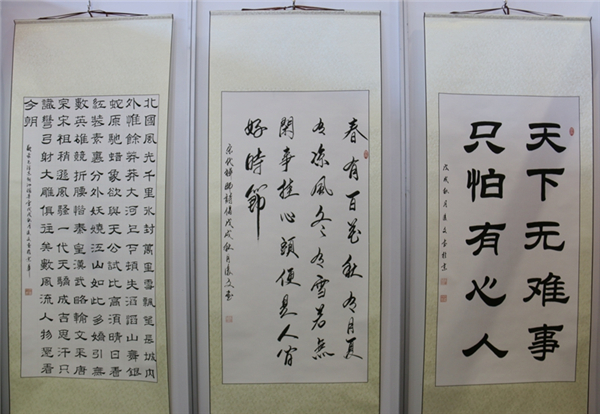 天下无难事
只怕有心人
春有百花秋有月夏
有凉風冬有雪若無
閑事挂心頭便是人間
好時節
北國風光千里冰封萬里雪飄望長城内
外惟餘莽莽大河上下頓失滔滔山舞銀
蛇原馳蠟象欲與天公試比高須晴日看
紅裝素裹分外妖嬈江山如此多嬌引無
數英雄競折腰惜秦皇漢武略輸文采唐
宗宋祖稍遜風騷一代天驕成吉思汗只
識彎弓射大雕俱往矣數風流人物還看
今朝